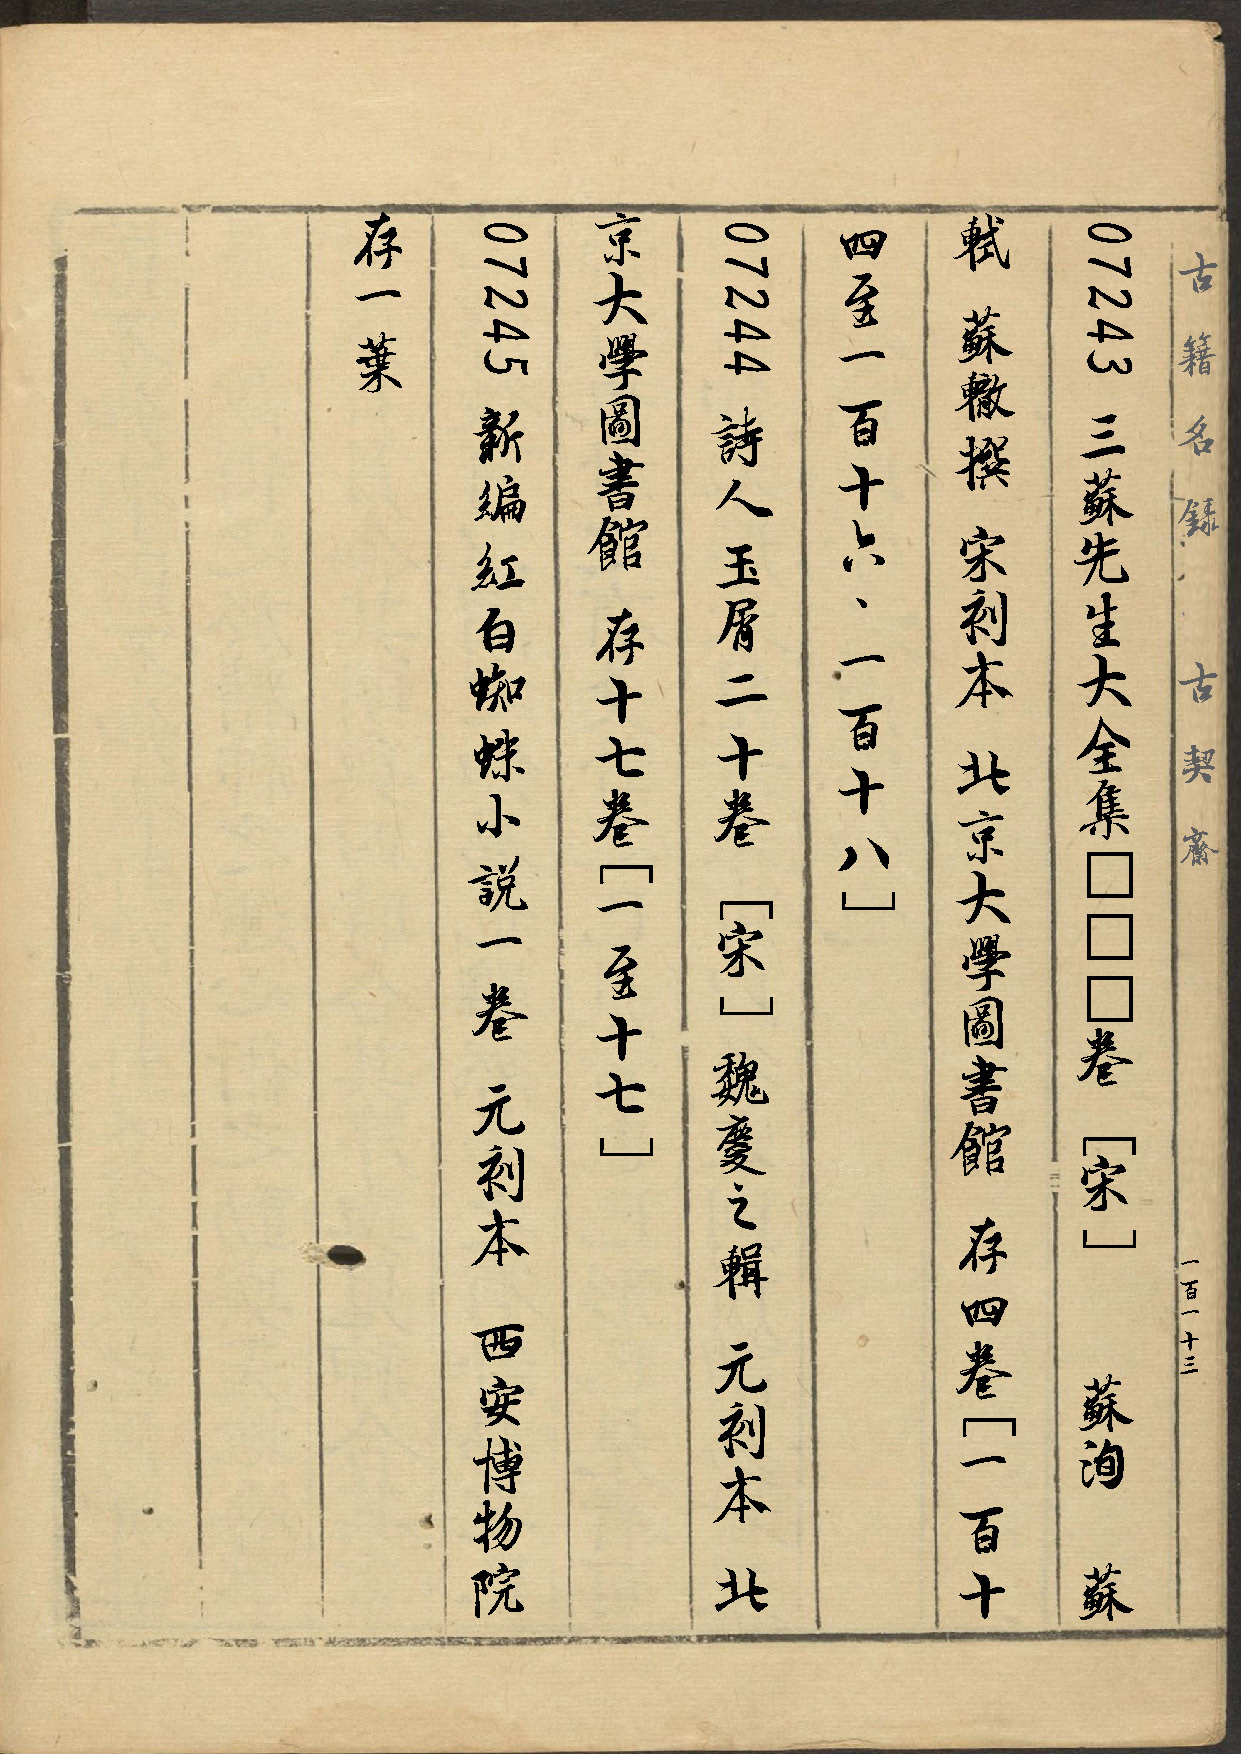 古籍名錄 古契齋 一百一十三
07243 三蘇先生大全集□□□卷 [宋] 蘇洵 蘇
軾 蘇轍撰 宋刻本 北京大學圖書館 存四卷[一百十
四至一百十六、一百十八]
07244 詩人玉屑二十卷 [宋] 魏慶之輯 元刻本 北
京大學圖書館 存十七卷[一至十七]
07245 新編紅白蜘蛛小說一卷 元刻本 西安博物院
存一葉